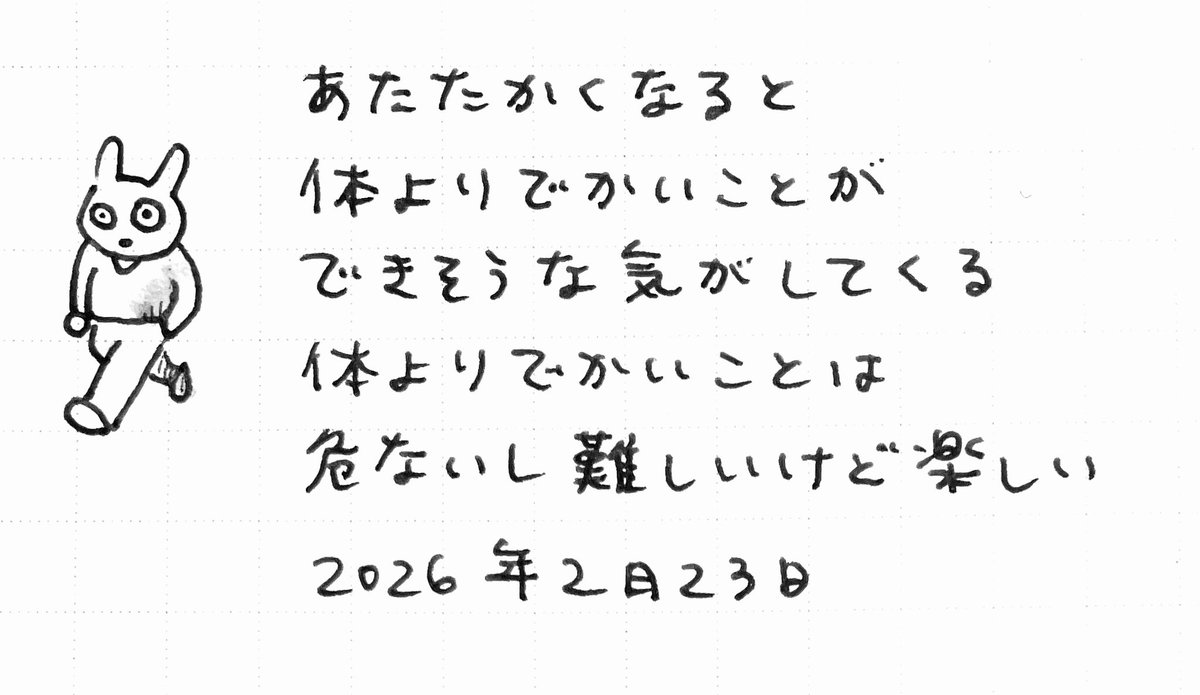 あたたかくなると
体よりでかいことが
できそうな気がしてくる
体よりでかいことは
危ないし難しいけど楽しい
2026年2月23日